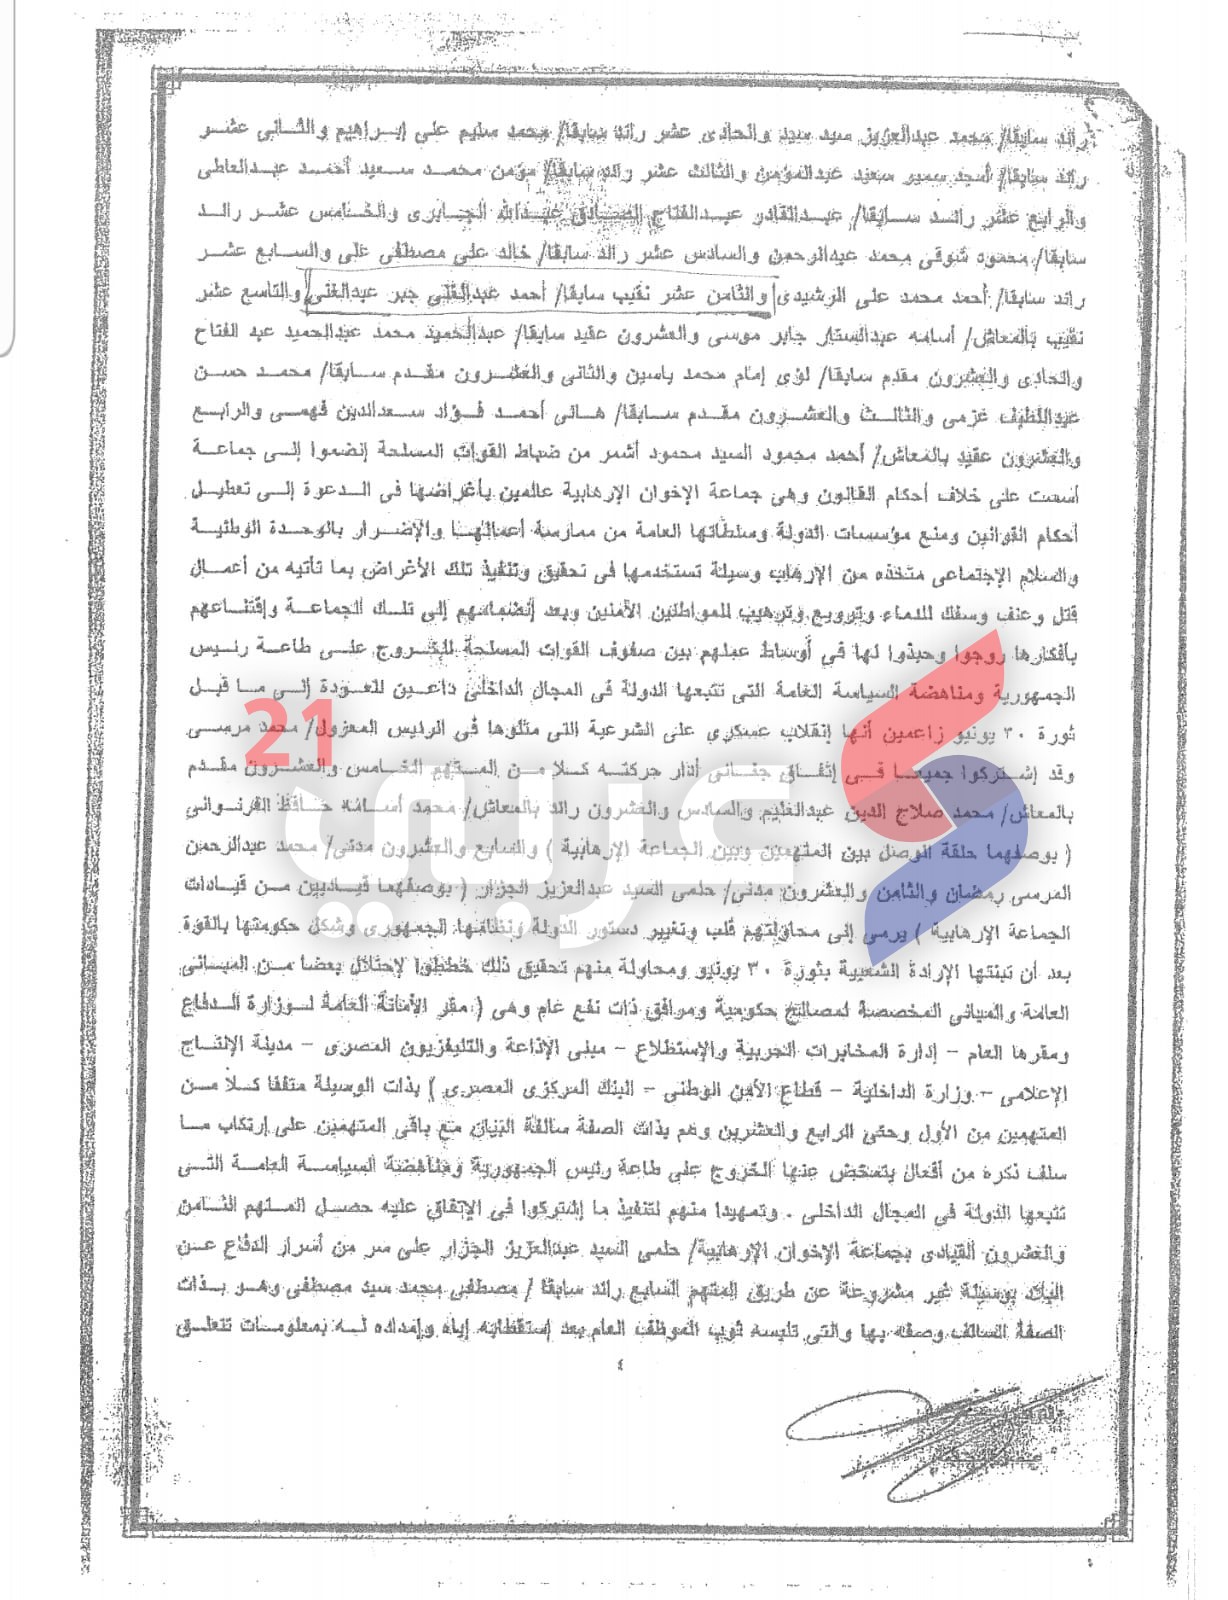 رائد سابقا/ محمد عبدالعزيز سيد سيد والحادى عشر رائد سابقا/ محمد سليم على إبراهيم والثانى عشر
رائد سابقا/ أمجد سمير سعيد عبدالمؤمن والثالث عشر رائد سابقا/ مؤمن محمد سعيد أحمد عبدالعاطى
والرابع عشر رائد سابقا/ عبدالقادر عبدالفتاح الصادق عبدالله الجابرى والخامس عشر رائد
سابقا/ محمود شوقى محمد عبدالرحمن والسادس عشر رائد سابقا/ خالد على مصطفى على والسابع عشر
رائد سابقا/ أحمد محمد على الرشيدى والثامن عشر نقيب سابقا/ أحمد عبدالغنى جبر عبدالغنى والتاسع عشر
نقيب بالمعاش/ أسامه عبدالستار جابر موسى والعشرون عقيد سابقا/ عبدالحميد محمد عبدالحميد عبد الفتاح
والحادى والعشرون مقدم سابقا/ لؤى إمام محمد ياسين والثانى والعشرون مقدم سابقا/ محمد حسن
عبداللطيف عزمى والثالث والعشرون مقدم سابقا/ هانى أحمد فؤاد سعدالدين فهمى والرابع
والعشرون عقيد بالمعاش/ أحمد محمود السيد محمود أشمر من ضباط القوات المسلحة إنضموا إلى جماعة
أسست على خلاف أحكام القانون وهى جماعة الإخوان الإرهابية عالمين بأغراضها فى الدعوة إلى تعطيل
أحكام القوانين ومنع مؤسسات الدولة وسلطاتها العامة من ممارسة أعمالها والإضرار بالوحدة الوطنية
والسلام الإجتماعى متخذه من الإرهاب وسيلة تستخدمها فى تحقيق وتنفيذ تلك الأغراض بما تأتيه من أعمال
قتل وعنف وسفك للدماء وترويع وترهيب للمواطنين الأمنين وبعد إنضمامهم إلى تلك الجماعة وإقتناعهم
بأفكارها روجوا وحبذوا لها فى أوساط عملهم بين صفوف القوات المسلحة للخروج على طاعة رئيس
الجمهورية ومناهضة السياسة العامة التى تتبعها الدولة فى المجال الداخلى داعين للعودة إلى ما قبل
ثورة ٣٠ يونيو زاعمين أنها إنقلاب عسكرى على الشرعية التى مثلوها فى الرئيس المعزول/ محمد مرسى
وقد إشتركوا جميعا فى إتفاق جنائى أدار حركته كلا من المتهم الخامس والعشرون مقدم
بالمعاش/ محمد صلاح الدين عبدالحليم والسادس والعشرون رائد بالمعاش/ محمد أسامه حافظ
( بوصفهما حلقة الوصل بين المتهمين وبين الجماعة الإرهابية ) والسابع والعشرون مدنى/ محمد عبدالرحمن
المرسى رمضان والثامن والعشرون مدنى/ حلمى السيد عبدالعزيز الجزار ( بوصفهما قياديين من قيادات
الجماعة الإرهابية ) يرمى إلى محاولتهم قلب وتغيير دستور الدولة ونظامها الجمهورى وشكل حكومتها بالقوة
بعد أن تبنتها الإرادة الشعبية بثورة ٣٠ يونيو ومحاولة منهم تحقيق ذلك خططوا لإحتلال بعضا من المبانى
العامة والمبانى المخصصة لمصالح حكومية ومرافق ذات نفع عام وهى ( مقر الأمانة العامة لوزارة الدفاع
ومقرها العام - إدارة المخابرات الحربية والإستطلاع - مبنى الإذاعة والتليفزيون المصرى - مدينة الإنتاج
الإعلامى - وزارة الداخلية - قطاع الأمن الوطنى - البنك المركزى المصرى ) بذات الوسيلة متفقا كلا من
المتهمين من الأول وحتى الرابع والعشرين وهم بذات الصفة سالفة البيان مع باقى المتهمين على إرتكاب ما
سلف ذكره من أفعال يتمخض عنها الخروج على طاعة رئيس الجمهورية ومناهضة السياسة العامة التى
تتبعها الدولة فى المجال الداخلى . وتمهيدا منهم لتنفيذ ما إشتركوا فى الإتفاق عليه حصل المتهم الثامن
والعشرون القيادى بجماعة الإخوان الإرهابية/ حلمى السيد عبدالعزيز الجزار على سر من أسرار الدفاع عن
البلاد بوسيلة غير مشروعة عن طريق المتهم السابع رائد سابقا / مصطفى محمد سيد مصطفى وهو بذات
الصفة السالف وصفه بها والتى تلبسه ثوب الموظف العام بعد إستقطابه إياه وإمداده له بمعلومات تتعلق
٤
عربي
21